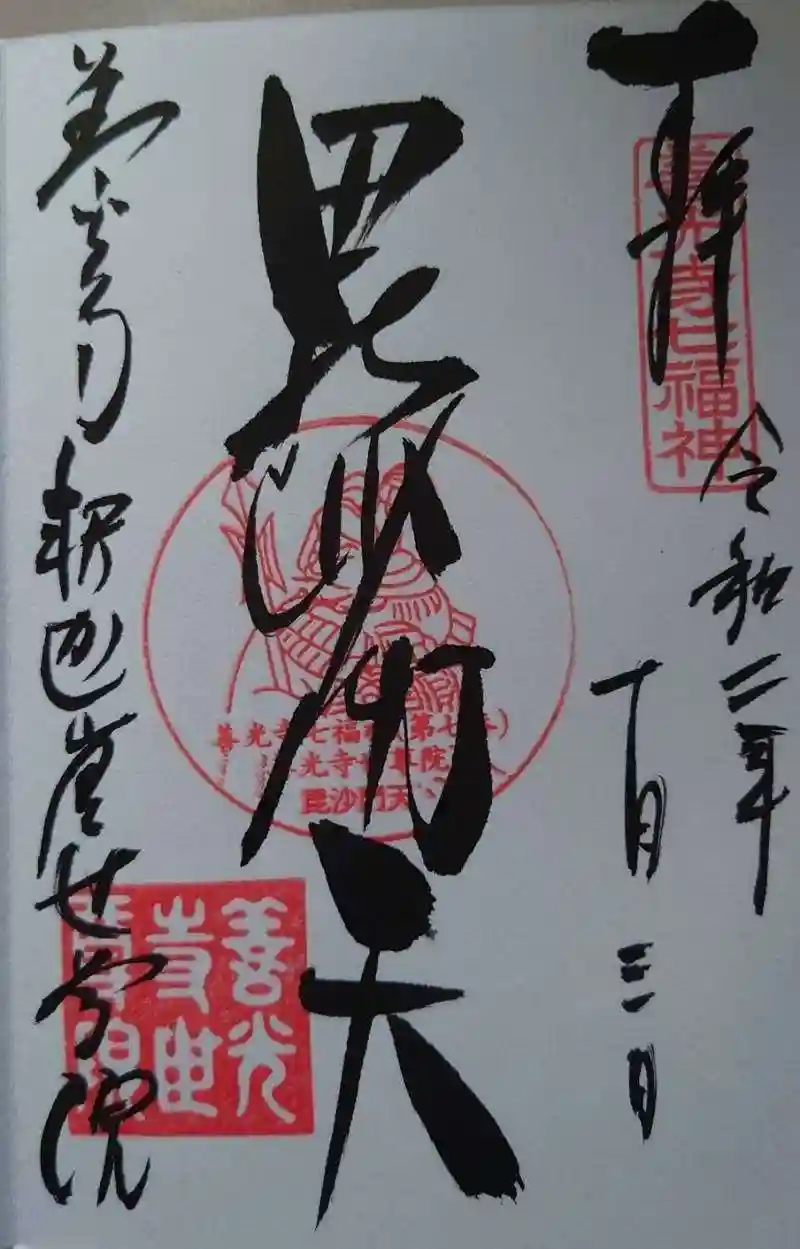 奉拝
善光寺七福神
令和二年
十月三日
毘沙門天
善光寺七福神(第七番)
善光寺世尊院
毘沙門天
善光寺釈迦堂世尊院
善光
寺世
尊院